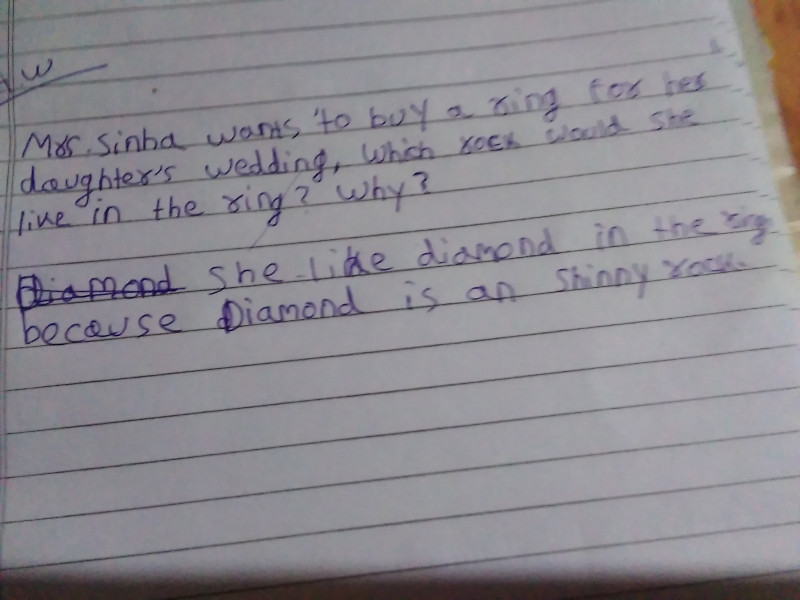 W
Mrs. Sinha wants to buy a ring for her
daughter's wedding, which rock would she
live in the ring? Why?
Diamond She like diamond in the ring
because Diamond is an shinny rock.